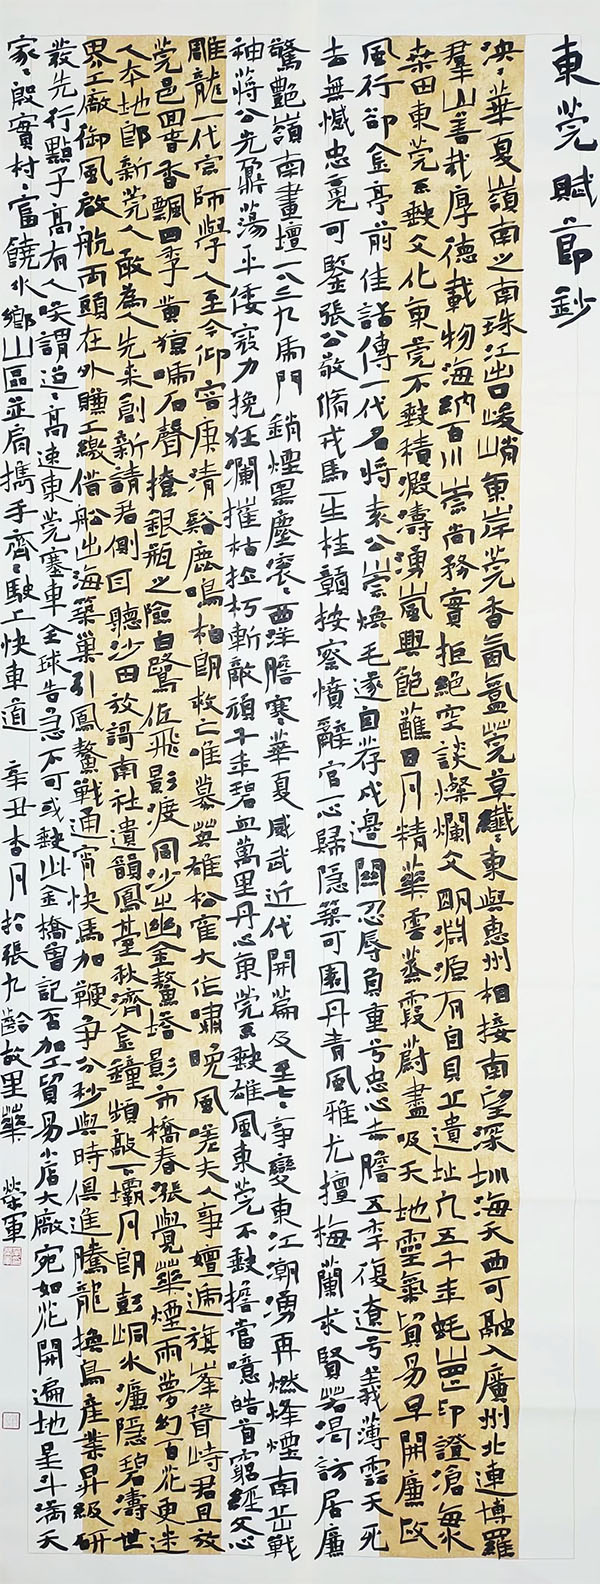 東莞賦節鈔
泱泱華夏嶺南之南珠江出口峻峭東岸莞香氤氳莞草纖纖東與惠州相接南望深圳海天西可融入廣州北連博羅
羣山善哉厚德載物海納百川崇尚務實拒絕空談燦爛文明淵源有自貝丘遺址凡五千年蚝崗印證滄海
桑田東莞不缺文化東莞不缺積澱濤湧嵐興飽蘸日月精華雲蒸霞蔚盡吸天地靈氣貿易早開廉政
風行卻金亭前佳話傳一代名將袁公崇煥毛遂自荐戍邊關忍辱負重兮忠心赤膽五年復遼兮義薄雲天死
去無憾忠烹可鑒張公敬脩戎馬一生桂贛按察憤辭官一心歸隱築可園丹青風雅尤擅梅蘭求賢若渴訪居廉
驚艷嶺南畫壇一八三九虎門銷煙黑塵滾滾西洋膽寒華夏威武近代開篇及至七七事變東江潮湧再燃烽煙南嶽戰
神蔣公先鼐蕩平倭寇力挽狂瀾摧枯拉朽斬敵頑千年碧血萬里丹心東莞不缺雄風東莞不缺擔當噫皓首窮經文心
雕龍一代宗師學人至今仰容庚清谿鹿鳴柏朗救亡唯慕英雄松崔大作嘯晚風嗟夫人事嬗遞旗峯聳峙君且放
莞邑回眸香飄四季黄猿啼石聲撩銀瓶之險白鷺低飛影渡同沙出幽金鰲塔影市橋春漲覺華煙雨夢幻百花更迷
人本地郎新莞人敢為人先来創新請君側耳聽沙田放謌南社遺韻鳳臺秋濟金鐘頻敲下壩月朗彭峒水濂隱碧濤世
界工廠御風啟航両頭在外賺工繳借船出海築巢引鳳鏖戰通宵快馬加鞭争分秒與時俱進騰龍換鳥産業昇級研
發先行點子高有人笑謂道道高速東莞塞車全球告急不可或缺此金橋曾記否加工貿易小店大廠宛如花開遍地星斗滿天
家家殷實村村富饒水鄉山區並肩携手齊齊駛上快車道 辛丑杏月於張九齡故里華 榮軍